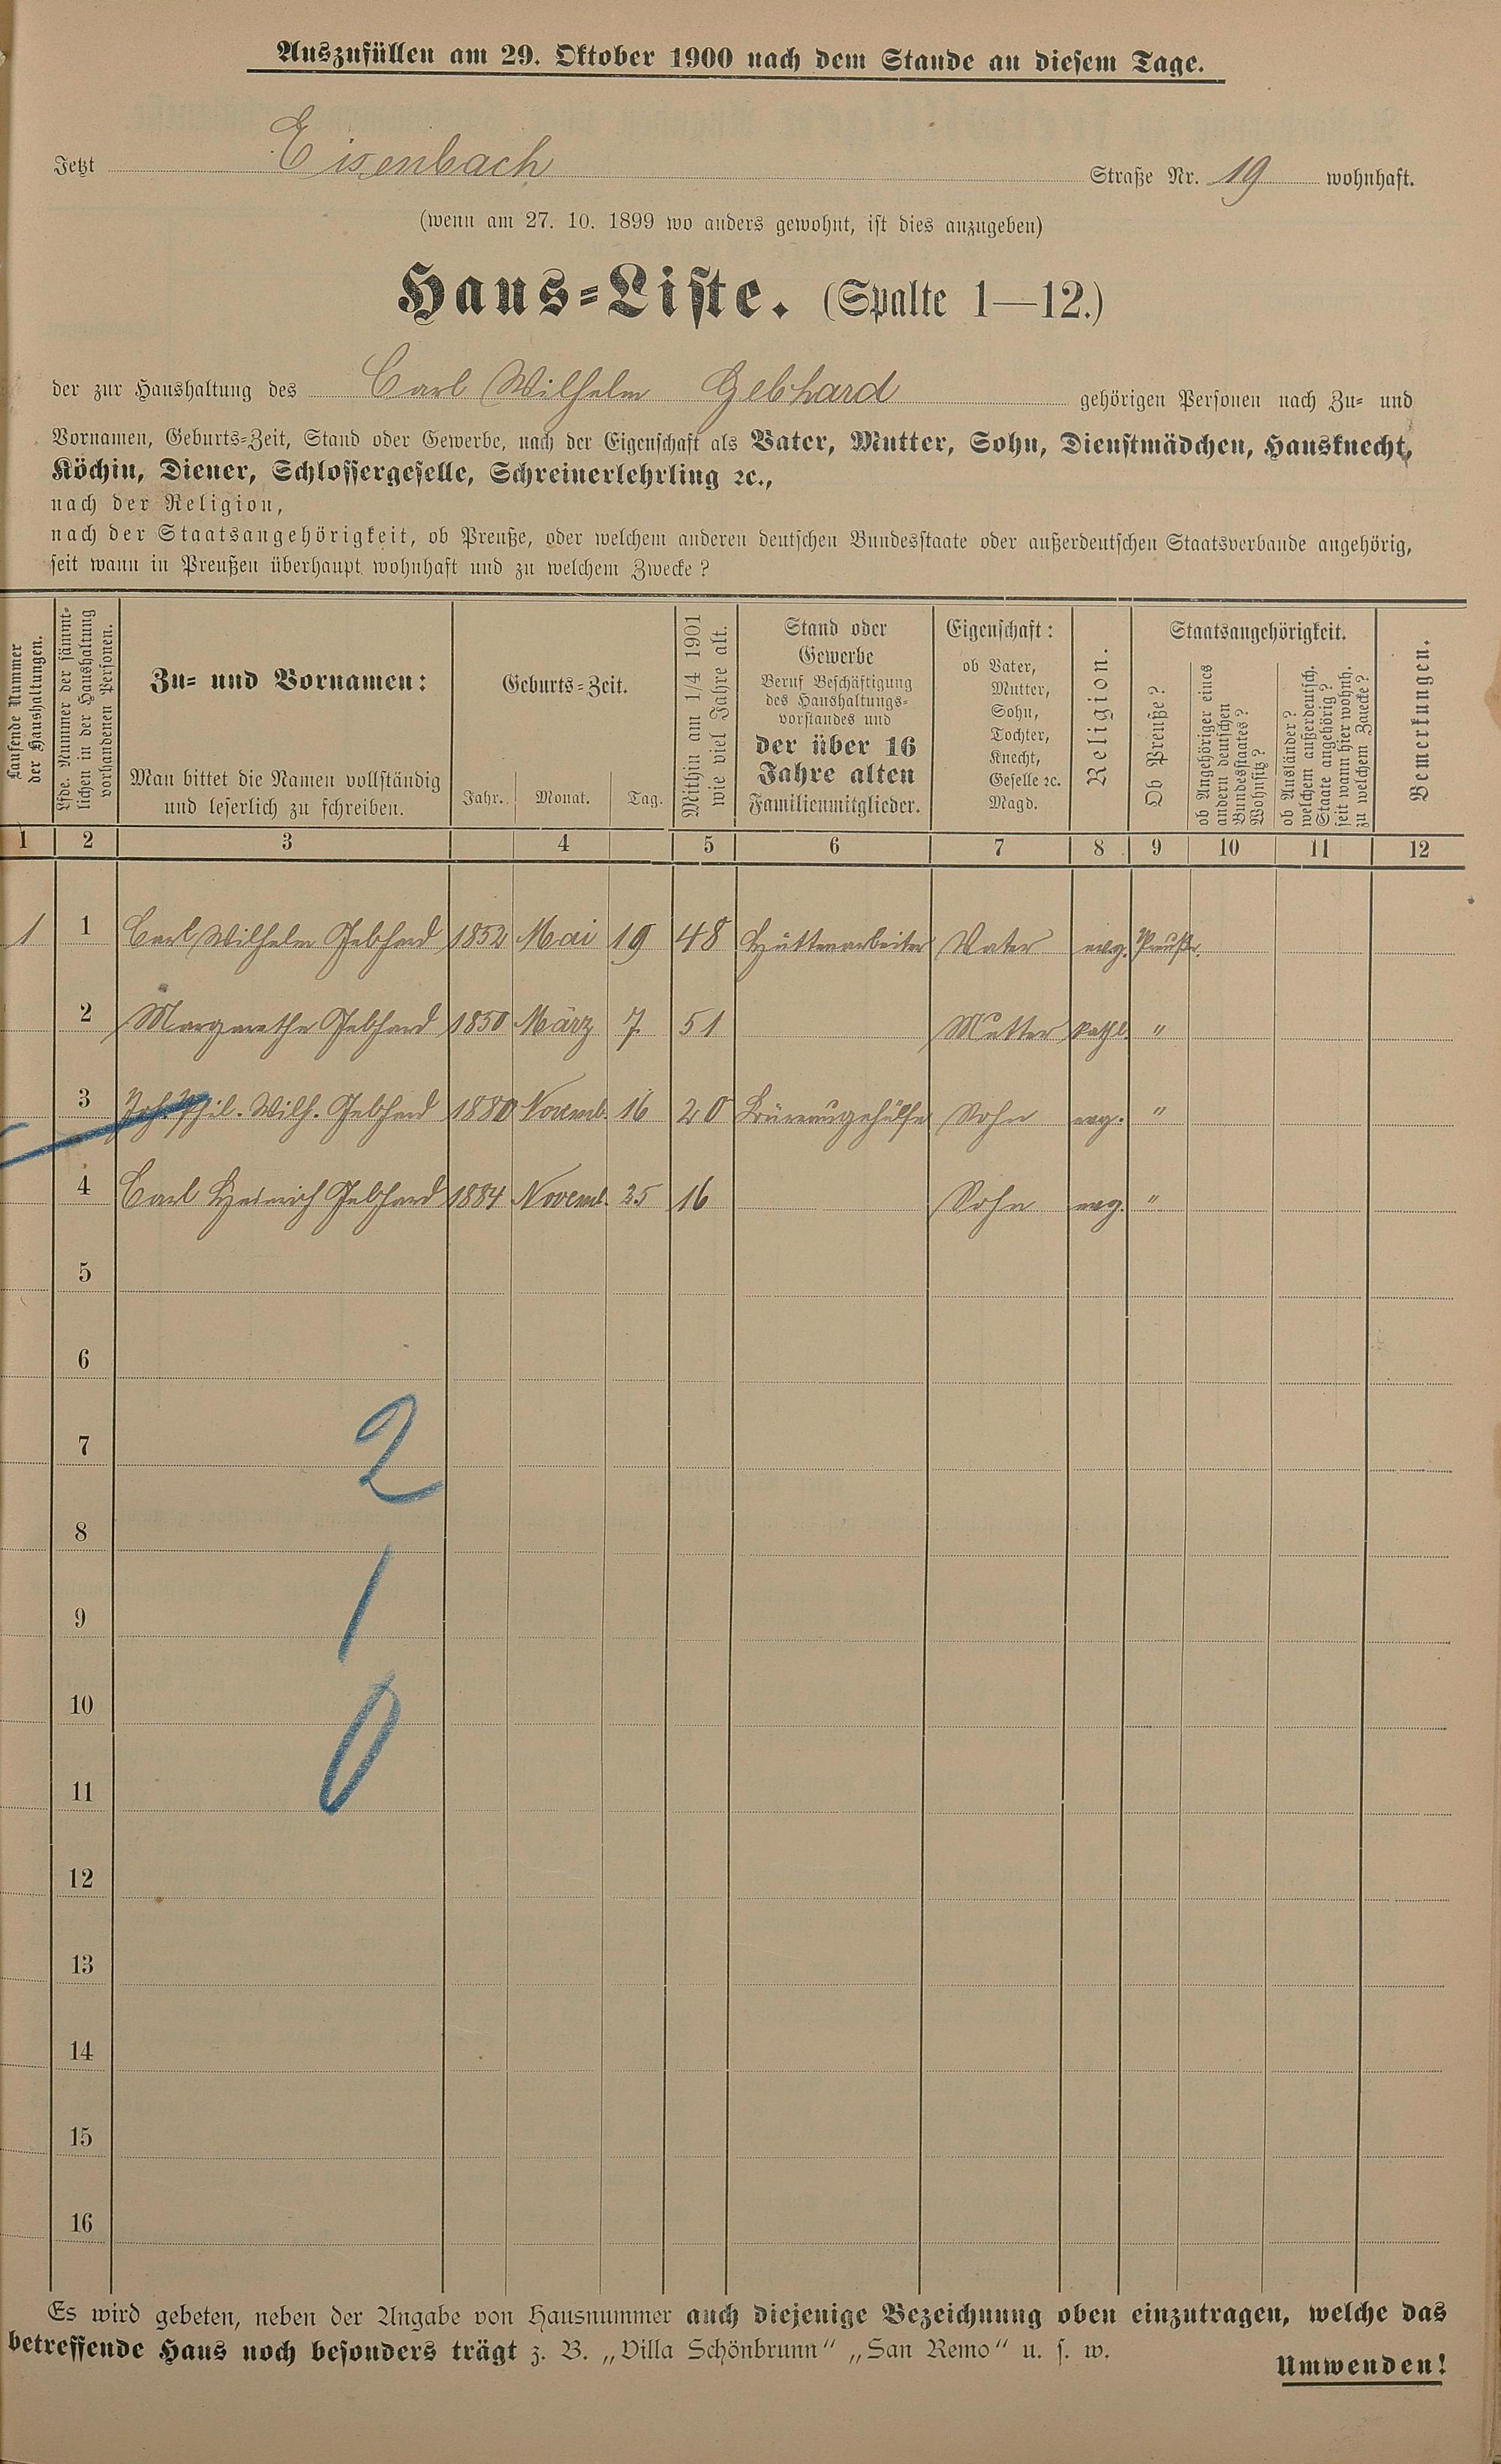 Auszufüllen am 29. Oktober 1900 nach dem Stande an diesem Tage.
Jetzt Eisenbach Straße Nr. 19 wohnhaft.
(wenn am 27. 10. 1899 wo anders gewohnt, ist dies anzugeben)
Haus-Liste. (Spalte 1—12.)
der zur Haushaltung des Carl Wilhelm Gebhard gehörigen Personen nach Zu- und
Vornamen, Geburts-Zeit, Stand oder Gewerbe, nach der Eigenschaft als Vater, Mutter, Sohn, Dienstmädchen, Hausknecht,
Köchin, Diener, Schlossergeselle, Schreinerlehrling ꝛc.,
nach der Religion,
nach der Staatsangehörigkeit, ob Preuße, oder welchem anderen deutschen Bundesstaate oder außerdeutschen Staatsverbande angehörig,
seit wann in Preußen überhaupt wohnhaft und zu welchem Zwecke?
Laufende Nummer
der Haushaltungen.
Lfde. Nummer der sämmt-
lichen in der Haushaltung
vorhandenen Personen.
Zu- und Vornamen:
Man bittet die Namen vollständig
und leserlich zu schreiben.
Geburts-Zeit.
Jahr. Monat. Tag.
Mithin am 1/4 1901
wie viel Jahre alt.
Stand oder
Gewerbe
Beruf Beschäftigung
des Haushaltungs-
vorstandes und
der über 16
Jahre alten
Familienmitglieder.
Eigenschaft:
ob Vater,
Mutter,
Sohn,
Tochter,
Knecht,
Geselle ꝛc.
Magd.
Religion.
Staatsangehörigkeit.
Ob Preuße?
ob Angehöriger eines
andern deutschen
Bundesstaates?
Wohnsitz?
ob Ausländer?
welchem außerdeutsch.
Staate angehörig?
seit wann hier wohnh.
zu welchem Zwecke?
Bemerkungen.
1 2 3 4 5 6 7 8 9 10 11 12
1 1 Carl Wilhelm Gebhard 1852 Mai 19 48 Hüttenarbeiter Vater evg. Preuße.
2 Margarethe Gebhard 1850 März 7 51 Mutter kathl. "
3 Joh. Phil. Wilh. Gebhard 1880 Novemb. 16 20 Büreaugehülfe Sohn evg. "
4 Carl Heinrich Gebhard 1884 Novemb. 25 16 Sohn evg. "
5
6
7 2
8
9 1
10
11 0
12
13
14
15
16
Es wird gebeten, neben der Angabe von Hausnummer auch diejenige Bezeichnung oben einzutragen, welche das
betreffende Haus noch besonders trägt z. B. „Villa Schönbrunn“ „San Remo“ u. s. w.
Umwenden!